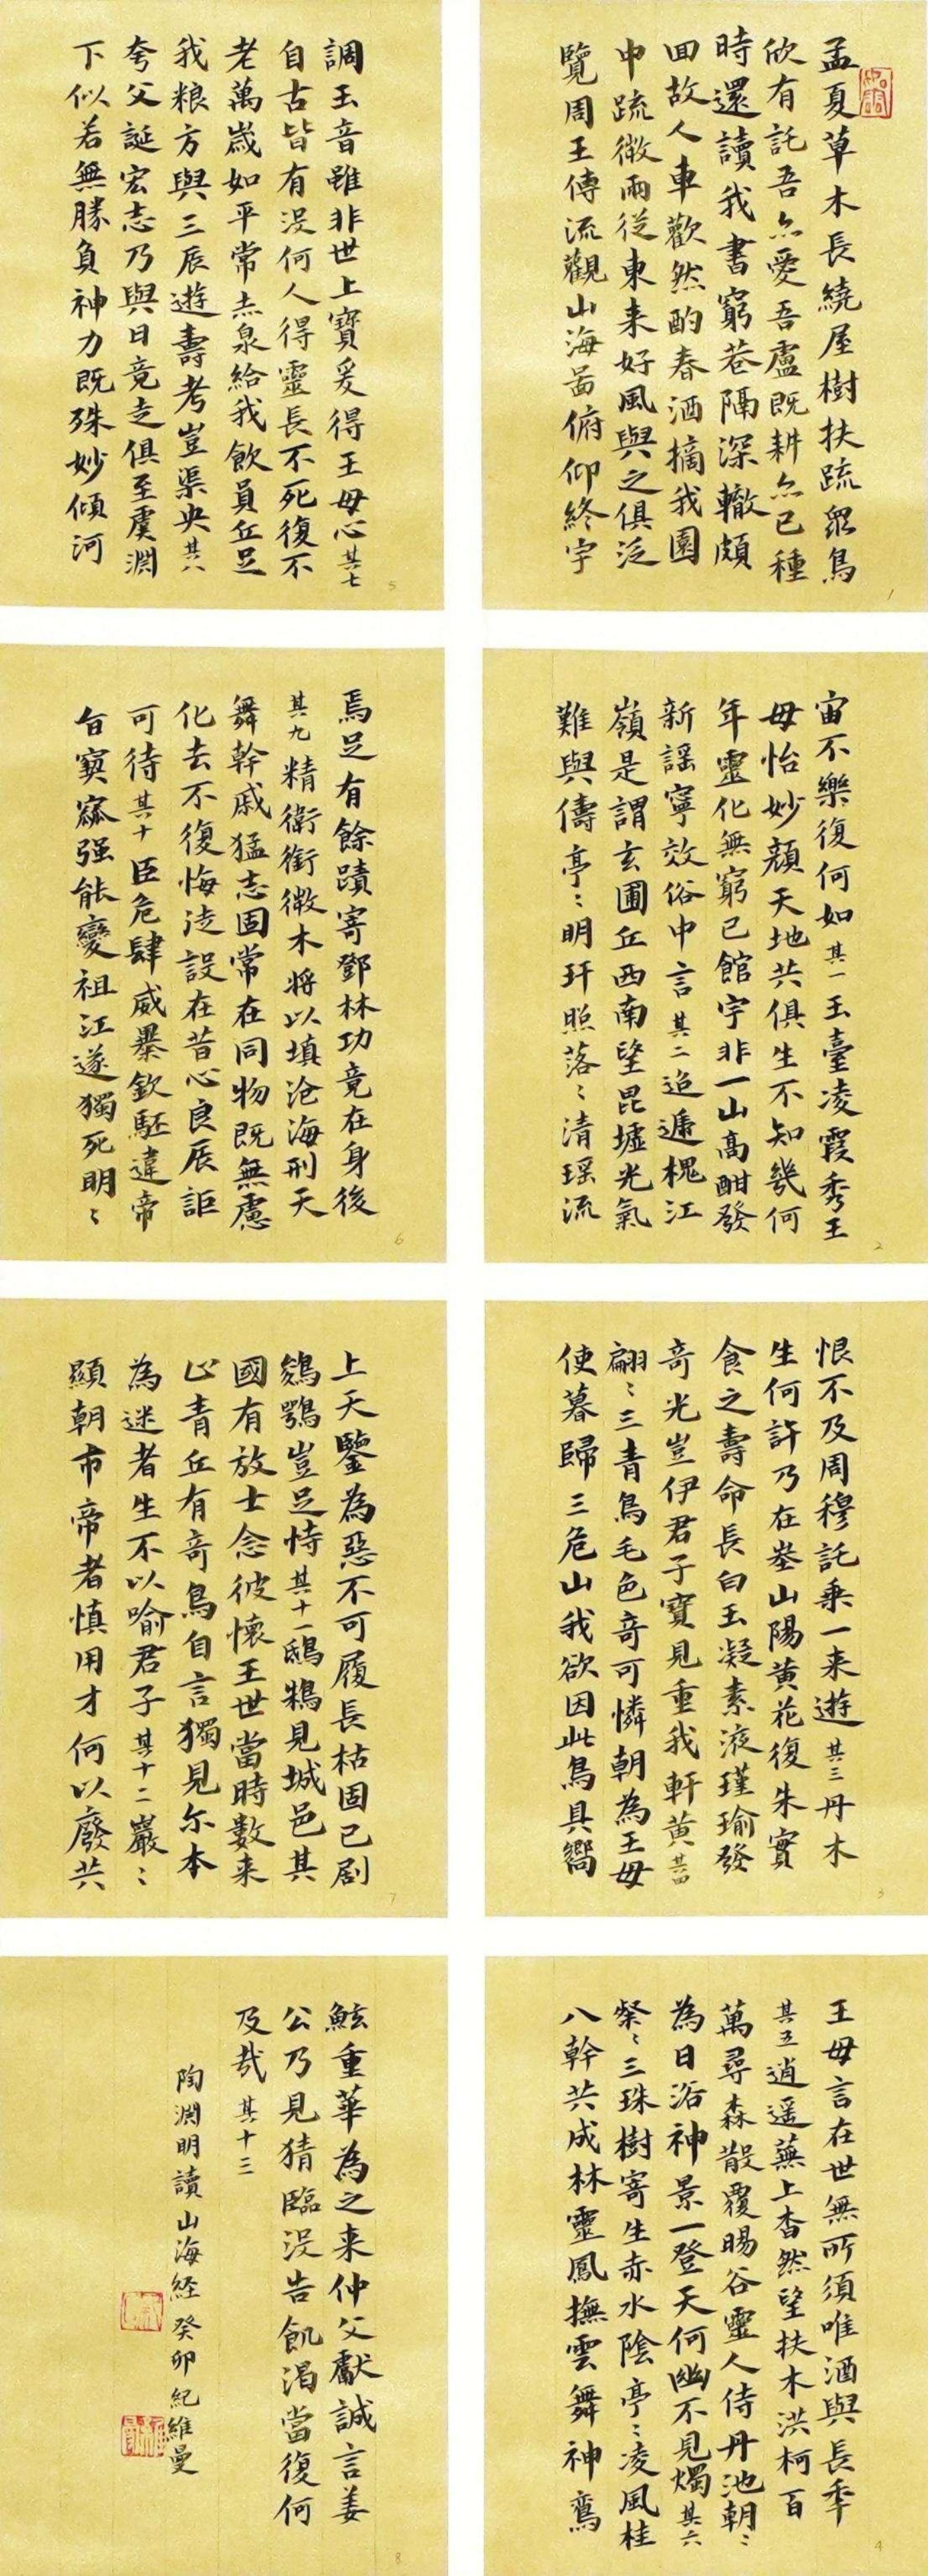 孟夏草木長繞屋樹扶疏眾鳥
欣有託吾亦愛吾廬既耕亦已種
時還讀我書窮巷隔深轍頗
回故人車歡然酌春酒摘我園
中蔬微雨從東来好風與之俱泛
覽周王傳流觀山海啚俯仰終宇
1
宙不樂復何如其一玉臺凌霞秀王
母怡妙顏天地共俱生不知幾何
年靈化無窮已館宇非一山高酣發
新謡寧效俗中言其二迢遞槐江
嶺是謂玄圃丘西南望昆墟光氣
難與儔亭〻明玕照落〻清瑶流
2
恨不及周穆託乗一来遊其三丹木
生何許乃在峚山陽黄花復朱實
食之壽命長白玉凝素液瑾瑜發
奇光豈伊君子寶見重我軒黄其四
翩〻三青鳥毛色奇可憐朝為王母
使暮歸三危山我欲因此鳥具嚮
3
王母言在世無所須唯酒與長年
其五逍遥蕪上杳然望扶木洪柯百
萬尋森散覆暘谷靈人侍丹池朝〻
為日浴神景一登天何幽不見燭其六
粲〻三珠樹寄生赤水陰亭〻凌風桂
八幹共成林靈鳳撫雲舞神鸞
4
調玉音雖非世上寶爰得王母心其七
自古皆有没何人得靈長不死復不
老萬嵗如平常赤泉給我飲員丘足
我粮方與三辰遊壽考豈渠央其八
夸父誕宏志乃與日竞走俱至虞淵
下似若無勝負神力既殊妙傾河
5
焉足有餘蹟寄鄧林功竟在身後
其九精衛銜微木將以填滄海刑天
舞幹戚猛志固常在同物既無慮
化去不復悔徒設在昔心良辰詎
可待其十臣危肆威暴欽駓違帝
旨窫窳强能變祖江遂獨死明〻
6
上天鑒為惡不可履長枯固已劇
鵕鶚豈足恃其十一鴟鴸見城邑其
國有放士念彼懷王世當時數来
止青丘有奇鳥自言獨見尔本
為迷者生不以喻君子其十二巖〻
顯朝市帝者慎用才何以廢共
7
鮌重華為之来仲父獻誠言姜
公乃見猜臨没告飢渴當復何
及哉其十三
陶淵明讀山海経癸卯紀維曼
8